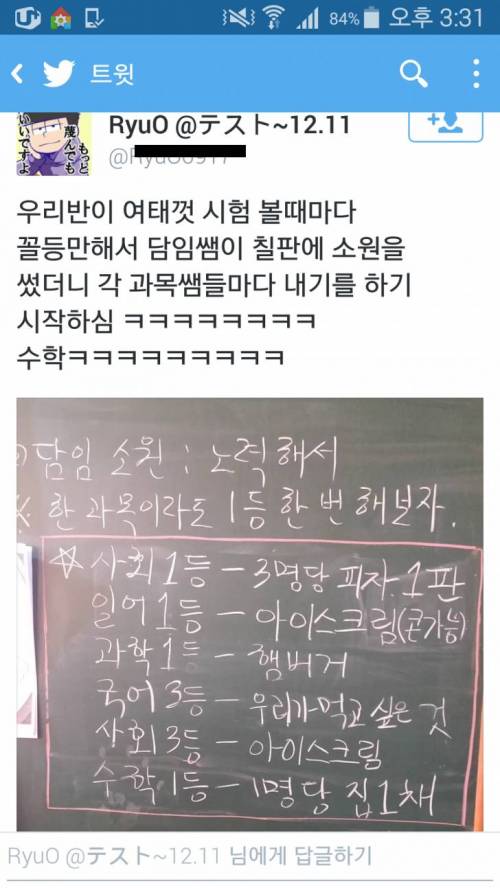 84% 오후 3:31
트윗
RyuO @テスト~12.11
우리반이 여태껏 시험 볼때마다
꼴등만해서 담임쌤이 칠판에 소원을
썼더니 각 과목쌤들마다 내기를 하기
시작하심 ㅋㅋㅋㅋㅋㅋㅋㅋ
수학ㅋㅋㅋㅋㅋㅋㅋㅋㅋ
담임 소원 : 노력해서
※ 한 과목이라도 1등 한 번 해보자.
☆ 사회 1등 - 3명당 피자 1판
일어 1등 - 아이스크림(콘가능)
과학 1등 - 햄버거
국어 3등 - 우리가 먹고 싶은 것
사회 3등 - 아이스크림
수학 1등 - 1명당 집 1채
RyuO @テスト~12.11 님에게 답글하기